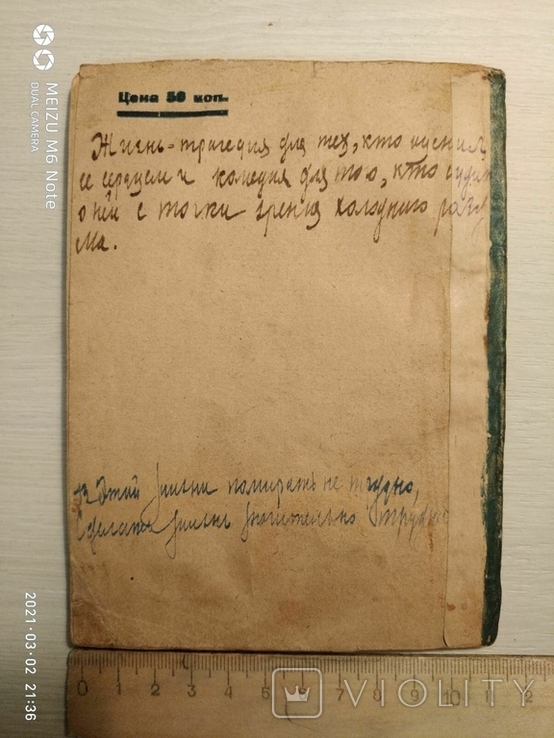 Цена 50 коп.
Жизнь-трагедия для тех, кто
ее сердцем и комедия для того, кто судит
о ней с точки зрения холодного разу
ма.
В этой жизни помирать не трудно,
Сделать жизнь значительно трудне
MEIZU M6 Note
DUAL CAMERA
2021·03·02 21:36
0 1 2 3 4 5 6 7 8 9 10 1 2
VIOLITY